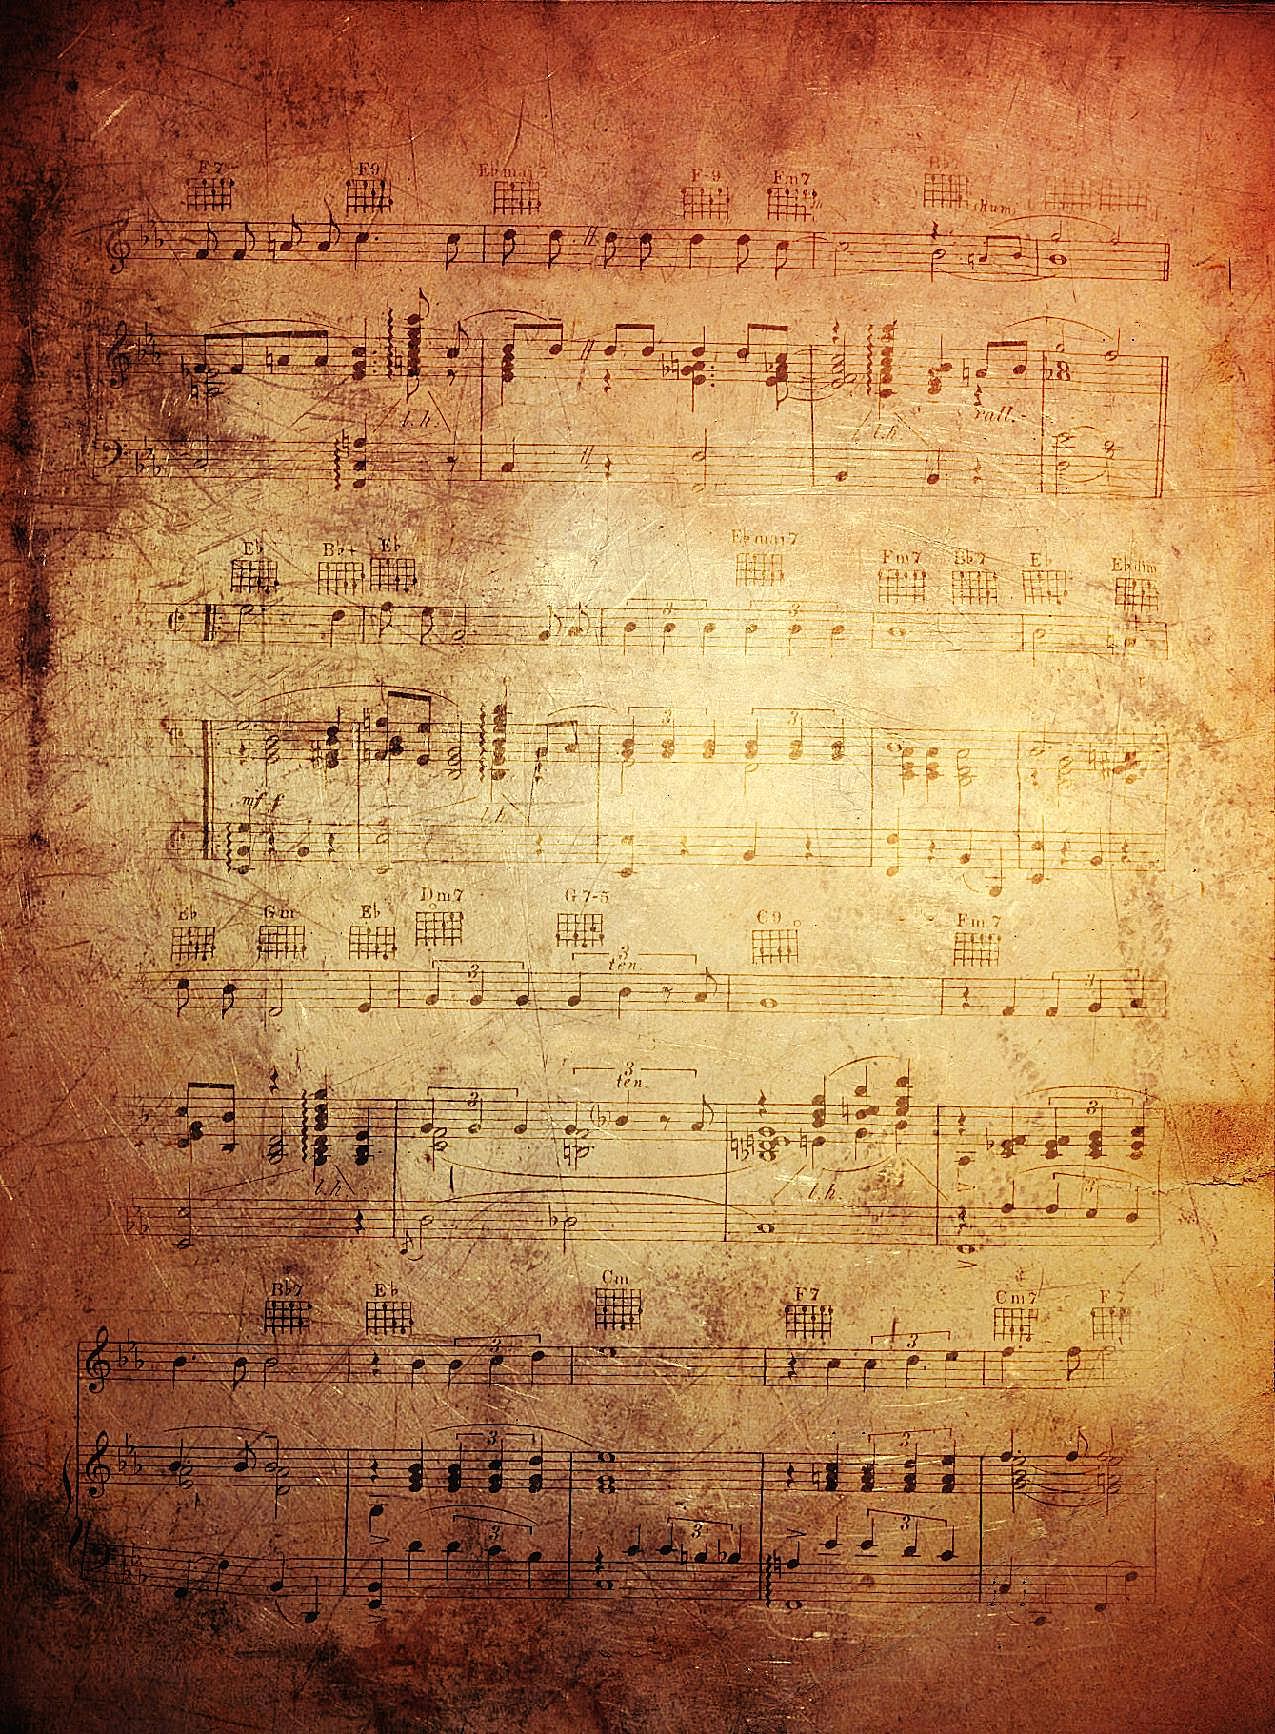 F7 F9 Eb maj 7 F-9 Fm7
l.h. l.h. rall.
Eb Bb+ Eb Eb maj 7 Fm7 Bb7 Eb Eb dim
3 3
3 3
mf-f l.h.
Eb Gm Eb Dm7 G7-5 C9 Fm7
3 3 3
ten.
3 3 3
ten.
l.h. l.h. 3
Bb7 Eb Cm F7 Cm7 F7
3 3
3 3
3 3 3